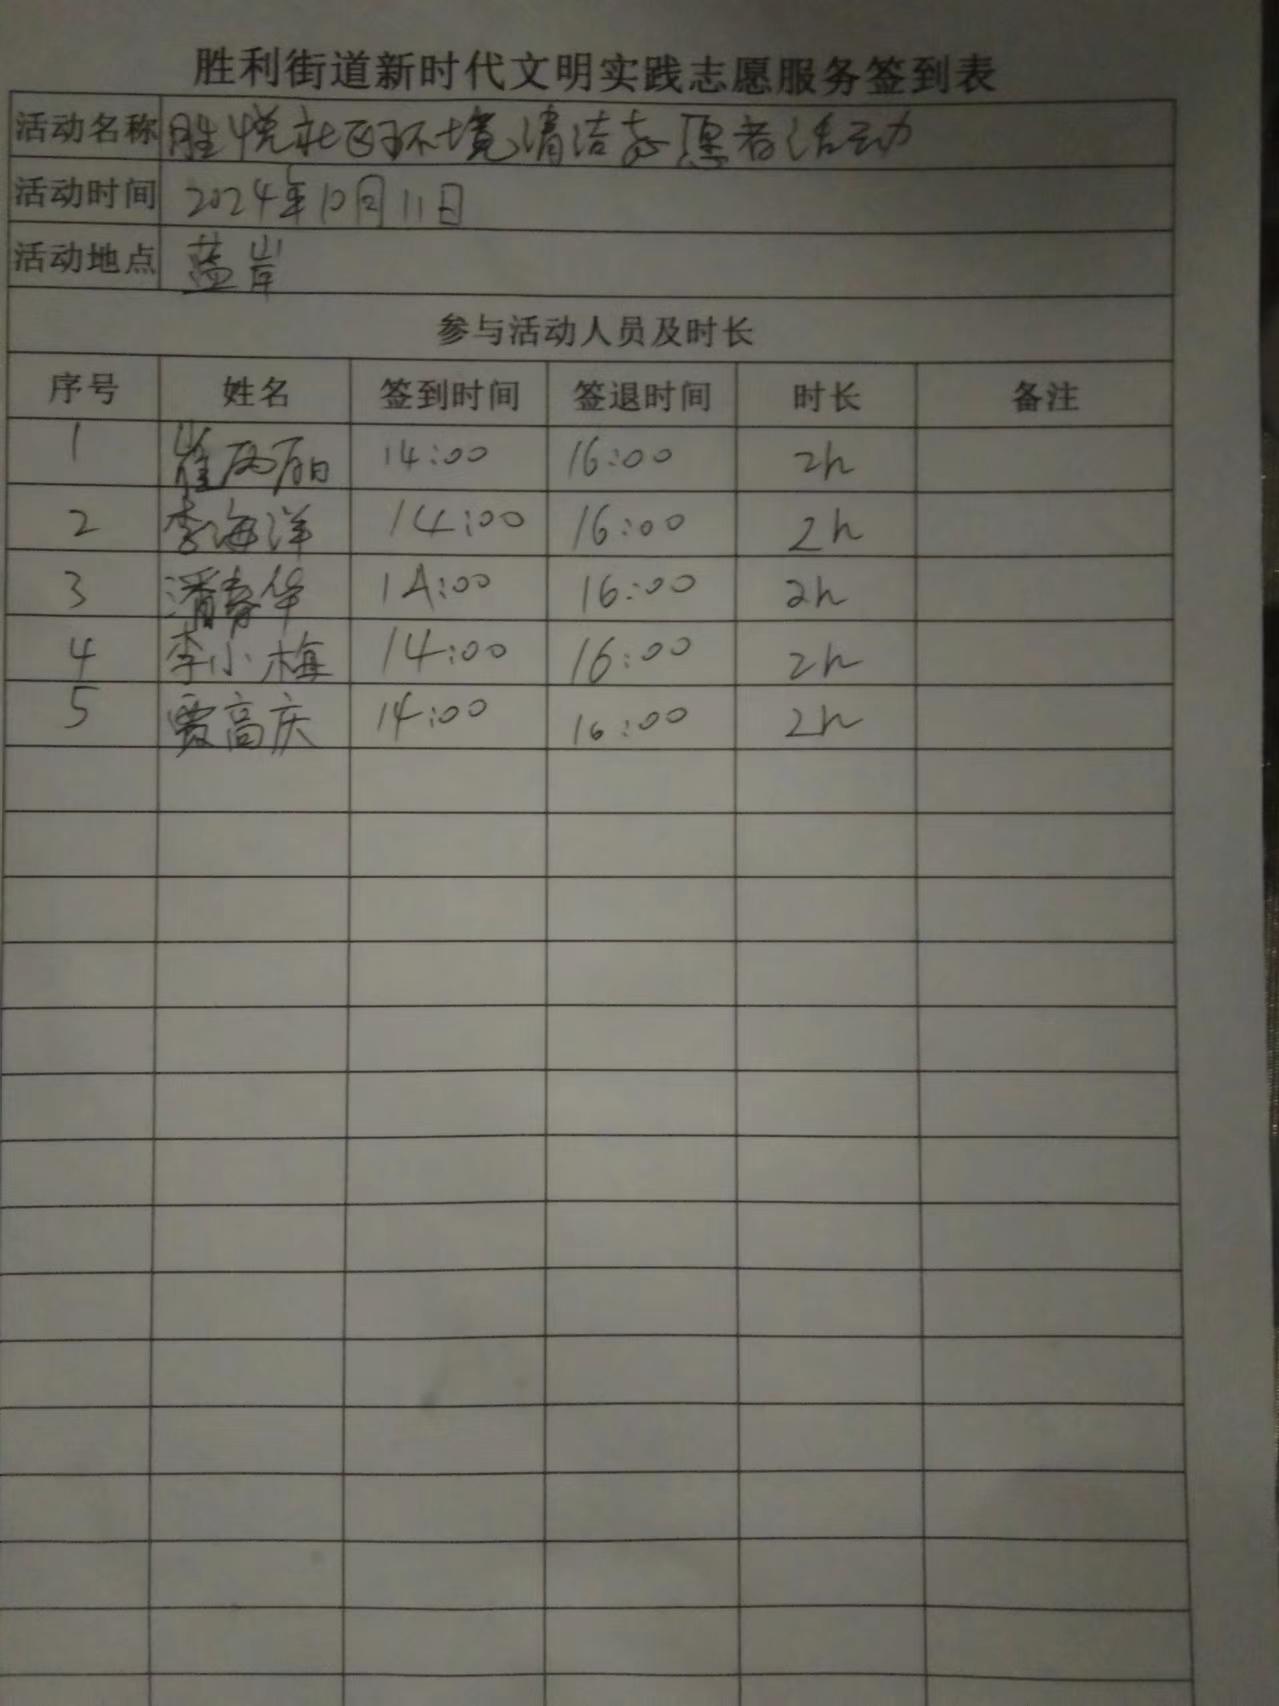 胜利街道新时代文明实践志愿服务签到表
活动名称 胜悦社区环境清洁志愿者活动
活动时间 2024年10月11日
活动地点 蓝岸
参与活动人员及时长
序号 姓名 签到时间 签退时间 时长 备注
1 崔丙丽 14:00 16:00 2h
2 李海洋 14:00 16:00 2h
3 潘春华 14:00 16:00 2h
4 李小梅 14:00 16:00 2h
5 贾高庆 14:00 16:00 2h